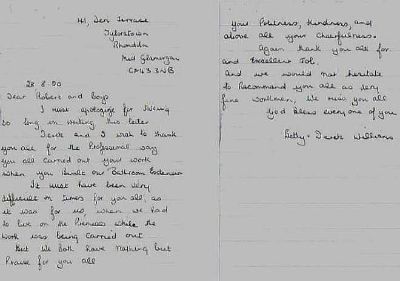 41, Seri Terrace
Tylorstown
Rhondda
Mid Glamorgan
CF43 3NB
28.8.00
Dear Robert and boys
I must apologize for leaving
so long in writing this letter
Derek and I wish to thank
you all for the Professional way
you all carried out your work
when you built our Bathroom Extension
It must have been very
difficult at times for you all, as
it was for us, when we had
to live on the Premises while the
work was being carried out
But we Both have nothing but
Praise for you all
your Politness, Kindness, and
above all your Cheerfulness.
Again thank you all for
and Excellent Job.
And we would not hesitate
to Recommend you all as very
fine workmen, We miss you all
God Bless everyone of you
Betty + Derek Williams